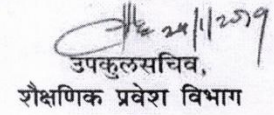 24/1/2019
उपकुलसचिव,
शैक्षणिक प्रवेश विभाग